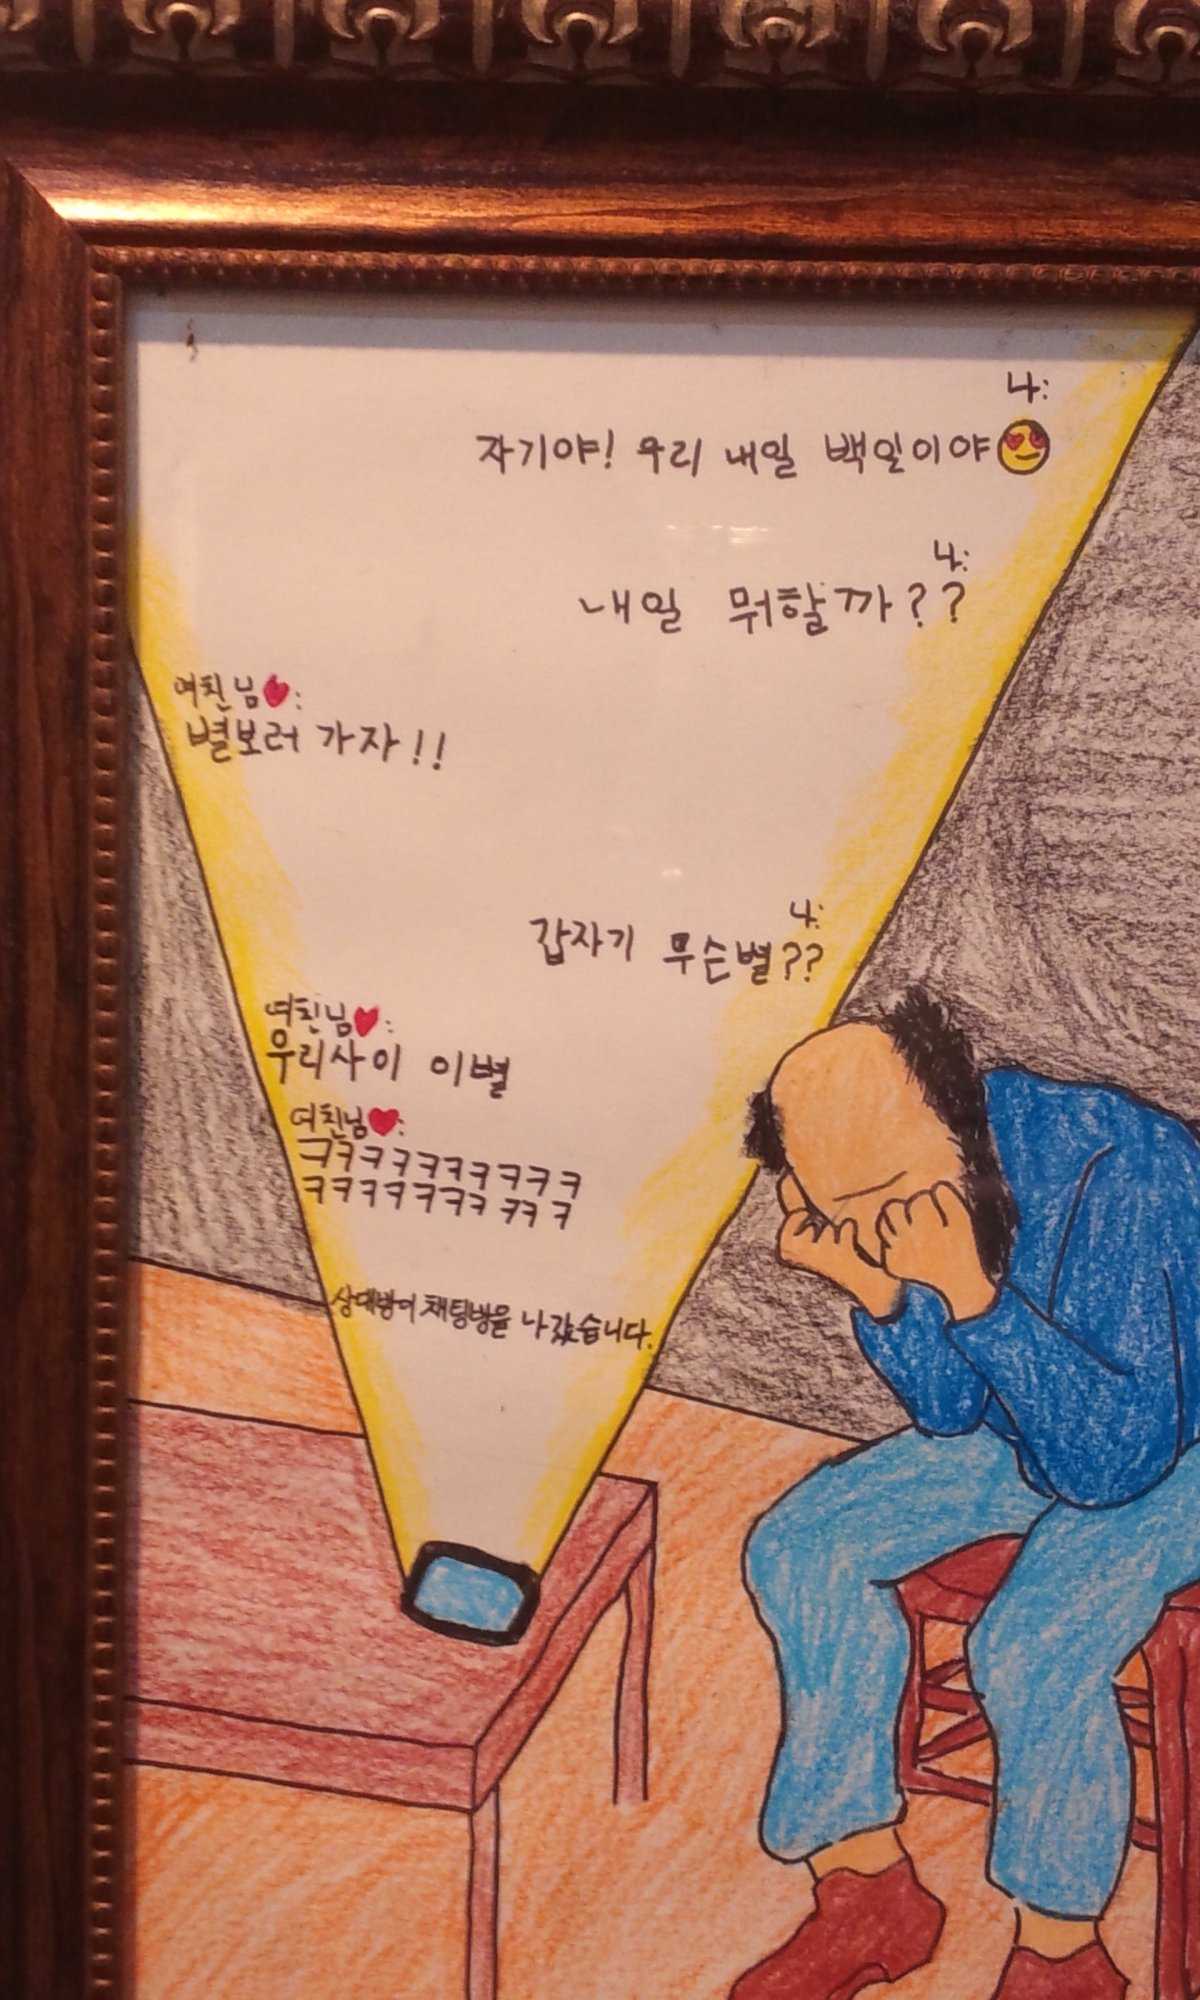 나:
자기야! 우리 내일 백일이야😍
나:
내일 뭐할까??
여친님♥:
별보러 가자!!
나:
갑자기 무슨별??
여친님♥:
우리사이 이별
여친님♥:
ㅋㅋㅋㅋㅋㅋㅋㅋㅋㅋ
ㅋㅋㅋㅋㅋㅋㅋ ㅋㅋ ㅋ
상대방이 채팅방을 나갔습니다.